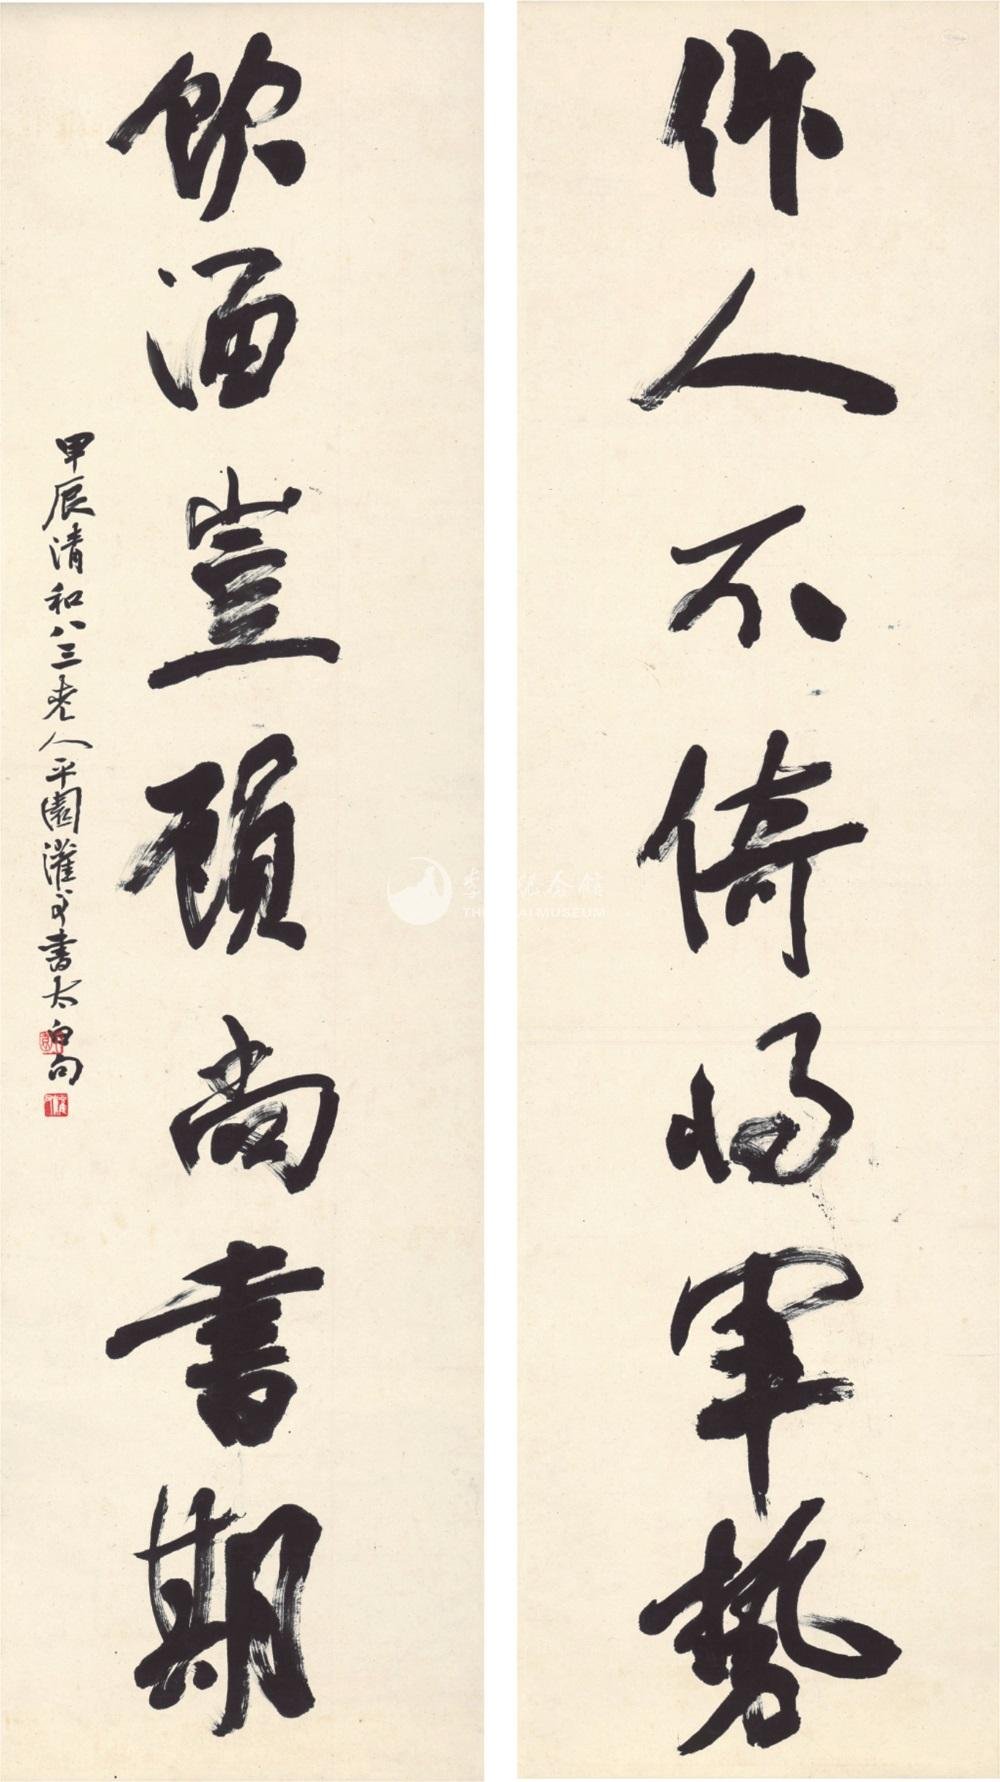 作人不倚將軍勢
飲酒豈顧尚書期
甲辰清和八三老人平園灌叟書太白句
THE LI BAI MUSEUM